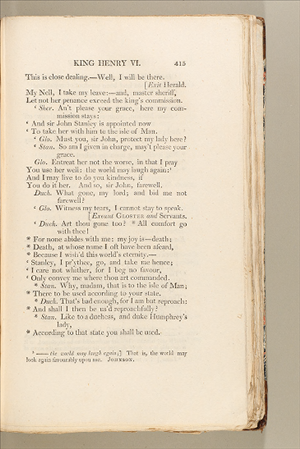 KING HENRY VI. 415
This is close dealing.—Well, I will be there.
[Exit Herald.
My Nell, I take my leave:—and, master sheriff,
Let not her penance exceed the king's commission.
‘ Sher. An't please your grace, here my com-
mission stays:
‘ And sir John Stanley is appointed now
‘ To take her with him to the isle of Man.
‘ Glo. Must you, sir John, protect my lady here?
‘ Stan. So am I given in charge, may't please your
grace.
Glo. Entreat her not the worse, in that I pray
You use her well: the world may laugh again;⁹
And I may live to do you kindness, if
You do it her. And so, sir John, farewell.
Duch. What gone, my lord; and bid me not
farewell?
‘ Glo. Witness my tears, I cannot stay to speak.
[Exeunt GLOSTER and Servants.
‘ Duch. Art thou gone too? * All comfort go
with thee!
* For none abides with me: my joy is—death;
* Death, at whose name I oft have been afeard,
* Because I wish'd this world's eternity.—
‘ Stanley, I pr'ythee, go, and take me hence;
‘ I care not whither, for I beg no favour,
‘ Only convey me where thou art commanded.
* Stan. Why, madam, that is to the isle of Man;
* There to be used according to your state.
* Duch. That's bad enough, for I am but reproach:
* And shall I then be us'd reproachfully?
* Stan. Like to a duchess, and duke Humphrey's
lady,
* According to that state you shall be used.
⁹ —— the world may laugh again;] That is, the world may
look again favourably upon me. JOHNSON.